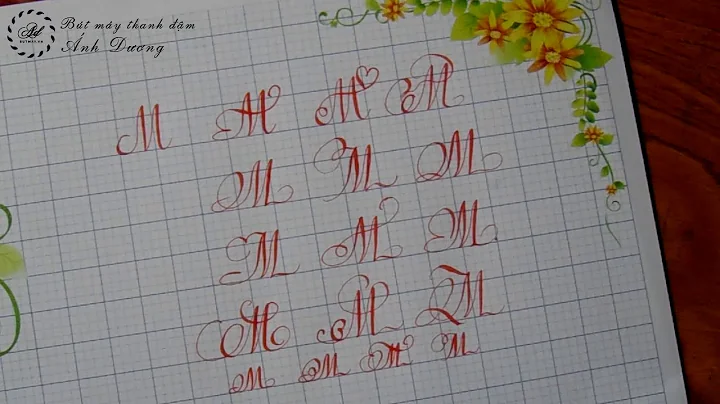 Bút máy thanh đậm
Ánh Dương
Ad
M M M M
M M M
M M M
M M M
M M M M